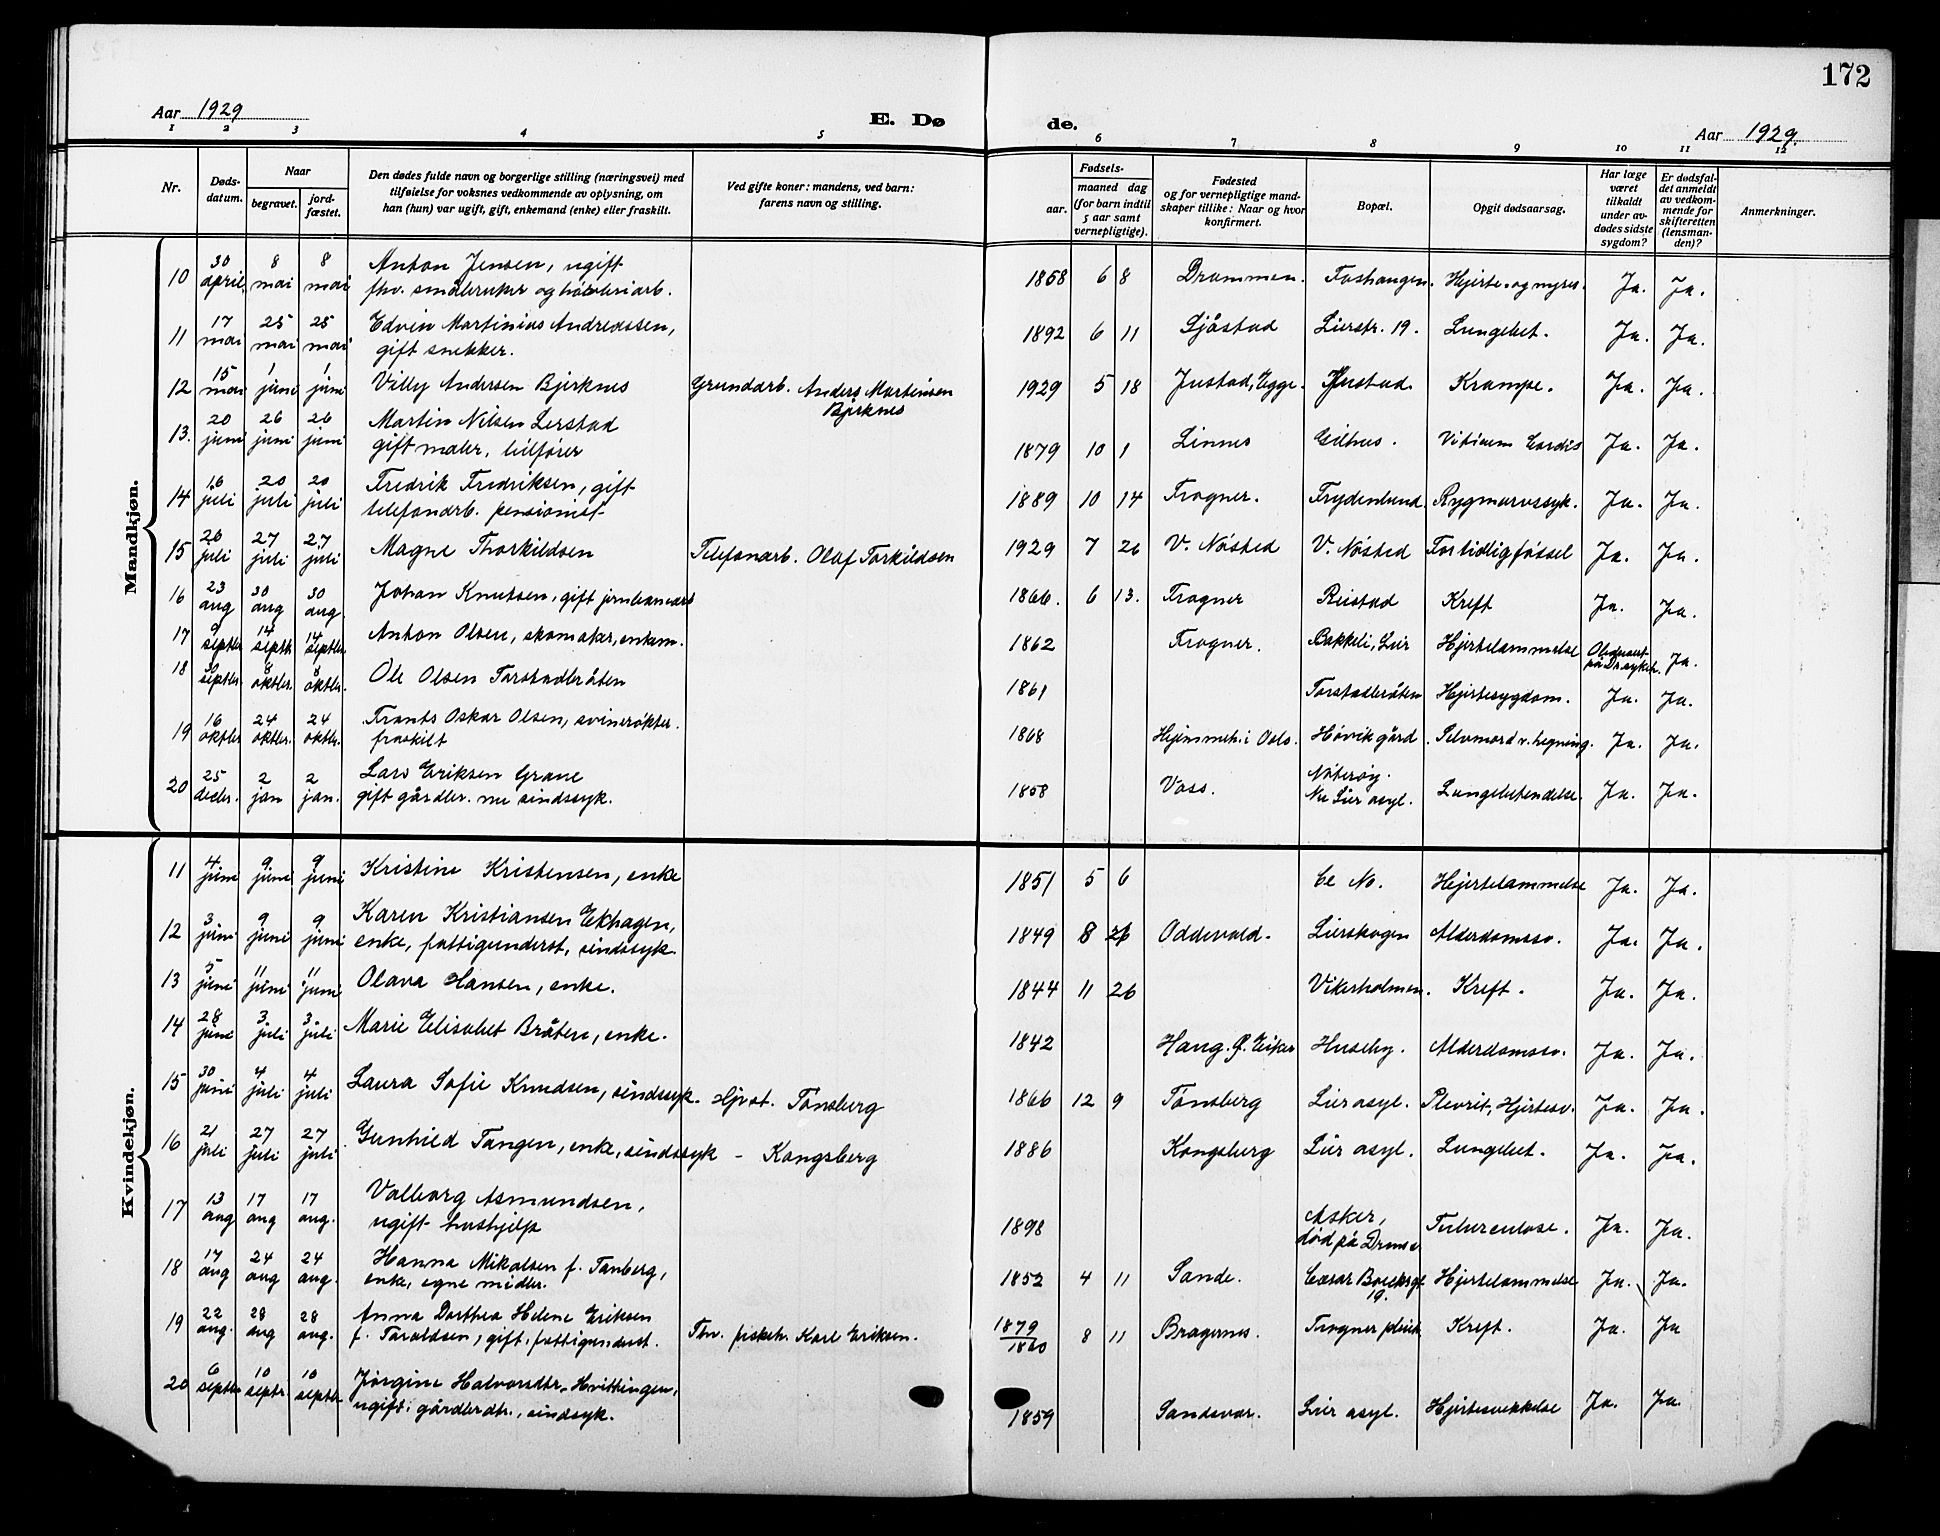 172
Aar 1929
E. Dø
de.
Aar 1929.
1 2 3 4 5 6 7 8 9 10 11 12
Nr.
Døds-
datum.
Naar
begravet.
jord-
fæstet.
Den dødes fulde navn og borgerlige stilling (næringsvei) med
tilføielse for voksnes vedkommende av oplysning, om
han (hun) var ugift, gift, enkemand (enke) eller fraskilt.
Ved gifte koner: mandens, ved barn:
farens navn og stilling.
Fødsels-
aar.
maaned dag
(for barn indtil
5 aar samt
vernepligtige).
Fødested
og for vernepligtige mand-
skaper tillike: Naar og hvor
konfirmert.
Bopæl.
Opgit dødsaarsag.
Har læge
været
tilkaldt
under av-
dødes sidste
sygdom?
Er dødsfal-
det anmeldt
av vedkom-
mende for
skifteretten
(lensman-
den)?
Anmerkninger.
Mandkjøn.
10 30 april 8 mai 8 mai Anton Jensen, ugift 1858 6 8 Drammen. Foshaugen. Hjerte- og nyres. Ja. Ja.
fhv. småbruker og høvleriarb.
11 17 mai 25 mai 25 mai Edvin Martinius Andreassen, 1892 6 11 Sjåstad Lierstr. 19. Lungebet. Ja. Ja.
gift snekker.
12 15 mai 1 juni 1 juni Villy Andersen Bjerknes Grundarb. Anders Martinsen 1929 5 18 Justad, Egge. Justad. Krampe. Ja. Ja.
Bjerknes
13. 20 juni 26 juni 26 juni Martin Nilsen Lerstad 1879 10 1 Linnes Gilhus. Vitium Cordis Ja. Ja.
gift maler, bilfører
14 16 juli 20 juli 20 juli Fredrik Fredriksen, gift 1889 10 14 Frogner. Frydenlund. Rygmarvssyk. Ja. Ja.
telefonarb. pensionist
15 26 juli 27 juli 27 juli Magne Thorkildsen Telefonarb. Olaf Torkildsen 1929 7 26 V. Nøsted V. Nøsted For tidlig fössel Ja. Ja.
16 23 aug 30 aug 30 aug. Johan Knutsen, gift jernbanearb 1866. 6 13. Frogner Reistad Kreft Ja. Ja.
17 9 septbr 14 septb 14 septbr. Anton Olsen, skomaker, enkem. 1862 Frogner. Bakkeli, Lier Hjertelammelse Ja.
18 septbr. 8 oktbr. 8 oktbr. Ole Olsen Torstadbråten 1861 Torstadbråten Hjertesygdom. Ja. Ja.
19 16 oktbr 24 oktbr. 24 oktbr. Frants Oskar Olsen, svinerøkter. 1868 Hjemmeh. i Oslo. Høvik gård Selvmord v. hegning. Ja. Ja.
fraskilt
20 25 decbr. 2 jan 2 jan. Lars Eriksen Grane 1858 Voss. Nøterøy. Lungebetendelse. Ja. Ja.
gift gårdbr. nu sindssyk. Nu Lier asyl.
Kvindekjøn.
11 4 juni 9 juni 9 juni Kristine Kristensen, enke 1851 5 6 Hejertelammelse Ja. Ja.
12 3 juni 9 juni 9 juni Karen Kristiansen Ekhagen, 1849 8 26 Oddevald. Lierskogen Alderdomssv. Ja. Ja.
enke, fattigunderst, sindssyk
13 5 juni 11 juni 11 juni Olava Hansen, enke. 1844 11 26 Vikerholmen. Kreft. Ja. Ja.
14 28 juni 3 juli 3 juli Marie Elisabet Bråten, enke. 1842 Haug. Ø. Eiker Huseby. Alderdomssv. Ja. Ja.
15 30 juni 4 juli 4 juli Laura Sofie Knudsen, sindssyk. Hjvst. Tønsberg 1866 12 9 Tønsberg Lier asyl. Plevrit, Hjertesv. Ja. Ja.
16 21 juli 27 juli 27 juli Gunhild Tangen, enke, sindssyk - Kongsberg 1886 Kongsberg Lier asyl. Lungebet. Ja. Ja.
17 13 aug 17 aug 17 aug. Valborg Asmundsen, 1898 Asker, Tuberculose. Ja. Ja.
ugift hushjelp død på Drms.
18 17 aug 24 aug 24 aug. Hanna Mikalsen f. Tanberg, 1852 4 11 Sande. Cæsar Boecksgt Hjertelammelse Ja. Ja.
enke, egne midler. 19.
19 22 aug. 28 aug 28 aug. Anna Dorthea Helene Eriksen 1879/1880 8 11 Bragernes. Frogner pleieh Kreft. Ja. Ja
f. Taraldsen, gift, fattigunderst. Fhv. fiskeh. Karl Eriksen.
20 6 septbr 10 septr. 10 septbr. Jørgine Halvorsdtr. Hvittingen, 1859 Sandsvær. Lier asyl. Hjertesvekkelse Ja. Ja.
ugift, gårdbrdtr., sindsyk.